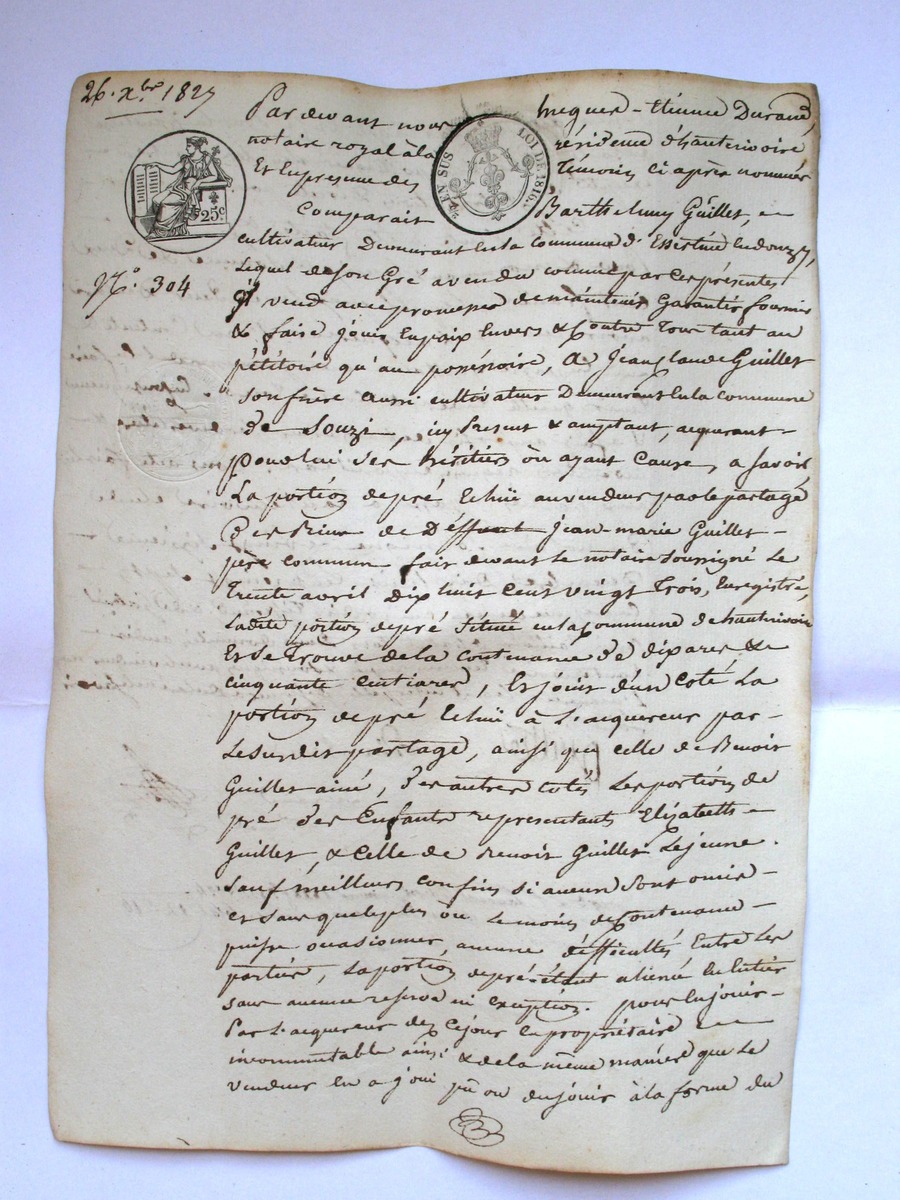 26. Xbre 1827
Pardevant nous hugues-Etienne Durand,
notaire royal à la résidence d'hauterivoire
Et En presence des Témoins ci après nommés
EN SUS LOI DE 1816.
25c
Comparait Barthelemy Guillet,
cultivateur Demeurant En la Commune d'Essertine en donzy,
N.o 304
Lequel de Son Gré a vendu comme par Ces présentes
Il vend avec promesse de maintenir Garantir fournir
& faire jouir En paix Envers & Contre Tous tant au
pétitoire qu'au possessoire, A Jean Claude Guillet
son frère aussi cultivateur Demeurant En la commune
De Souzi, icy Present & acceptant, acquerant
pour lui Ses héritiers ou ayant Cause, a Savoir
La portion de pré Echüe au vendeur par le partage
Des Biens de Déffunt Jean-marie Guillet
père commun fait devant Le notaire soussigné Le
Trente avril Dix huit Cent vingt Trois, Enregistré,
Ladite portion de pré Située en la Commune de hauterivoire
Et Se Trouve de la Contenance De dix ares &
cinquante Centiares, Et joint d'un Coté La
portion de pré Echüe à L'acquereur par
Le Susdit partage, ainsi que celle de Benoit
Guillet ainé, Des autres Cotés Les portions de
pré Des Enfants representants Elizabeth
Guillet, & Celle de Benoit Guillet Lejeune.
Sauf meilleurs confins si aucuns Sont omis
et Sans que le plus ou Le moins de Contenance
puisse occasionner, aucune difficultés Entre Les
parties, La portion de pré étant aliénée En Entier
Sans aucune reserve ni Exception. pour En jouir
Par L'acquereur dez Cejour En propriétaire
incommutable ainsi & de la même maniere que Le
vendeur En a joui pû ou du jouir à la forme du